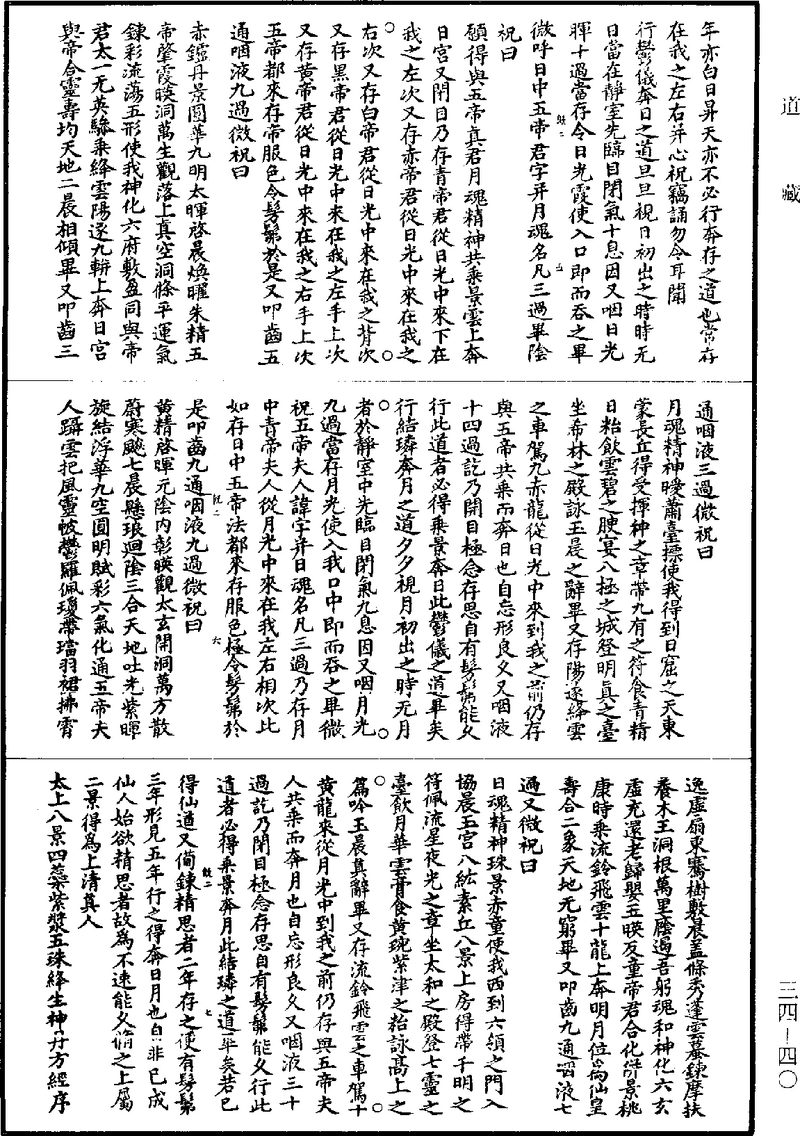 道藏
年亦白日昇天亦不必行奔存之道也常存
在我之左右并心祝竊誦勿令耳聞
行鬱儀奔日之道旦旦視日初出之時時无
日當在靜室先臨目閉氣十息因又咽日光
暉十過當存令日光霞使入口即而吞之畢
微呼日中五帝君字并月魂名凡三過畢陰
祝曰
願得與五帝真君月魂精神共乘景雲上奔
日宮又閉目乃存青帝君從日光中來下在
我之左次又存赤帝君從日光中來在我之
右次又存白帝君從日光中來在我之背次
又存黑帝君從日光中來在我之左手上次
又存黃帝君從日光中來在我之右手上次
五帝都來存帝服色令髣髴於是又叩齒五
通咽液九過微祝曰
赤鑪丹景圓華九明太暉啓晨煥曜朱精五
帝肇霞暎洞萬生觀落上真空洞條平運氣
鍊彩流蕩五形使我神化六府敷盈同與帝
君太一无英驂乘絳雲陽遂九輧上奔日宮
與帝合靈壽均天地二晨相傾畢又叩齒三
通咽液三過微祝曰
月魂精神曖蕭臺摽使我得到日窟之天東
蒙長丘得受揮神之章帶九有之符食青精
日粭飲雲碧之腴宴八極之城登明真之臺
坐希林之殿詠玉晨之辭畢又存陽遂絳雲
之車駕九赤龍從日光中來到我之前仍存
與五帝共乘而奔日也自忘形良久又咽液
十四過訖乃開目極念存思自有髣髴能久
行此道者必得乘景奔日此鬱儀之道畢矣
行結璘奔月之道夕夕視月初出之時无月
者於靜室中先臨目閉氣九息因又咽月光
九過當存月光使入我口中即而吞之畢微
祝五帝夫人諱字并日魂名凡三過乃存月
中青帝夫人從月光中來在我左右相次此
如存日中五帝法都來存服色極令髣髴於
是叩齒九通咽液九過微祝曰
黃精啓暉元陰內彰暎觀太玄開洞萬方散
蔚寒飈七晨懸琅迴陰三合天地吐光紫暉
旋結浮華九空圓明賦彩六氣化通五帝夫
人躡雲把風靈帔鬱羅佩瓊帶璫羽裙拂霄
逸虛扇東騫樹敷晨盖條秀蓬雲鍊摩扶
養木王洞根萬里廕過吾躬魂和神化六玄
虛充還老歸嬰五暎反童帝君合化景桃
康時乘流鈴飛雲十龍上奔明月位為仙皇
壽合二象天地无窮畢又叩齒九通咽液七
過又微祝曰
日魂精神珠景赤童使我西到六領之門入
協晨玉宮八絃素丘八景上房得帶千明之
符佩流星夜光之章坐太和之殿登七靈之
臺飲月華雲膏食黃琬紫津之粭詠高上之
篇吟玉晨真辭畢又存流鈴飛雲之車駕十
黃龍來從月光中到我之前仍存與五帝夫
人共乘而奔月也自忘形良久又咽液三十
過訖乃開目極念存思自有髣髴能久行此
道者必得乘景奔月此結璘之道畢矣若已
得仙道又備鍊精思者二年存之便有髣髴
三年形見五年行之得奔日月也自非已成
仙人始欲精思者故為不速能久脩之上屬
二景得為上清真人
太上八景四蘂紫漿五珠絳生神丹方經序
三四—四〇